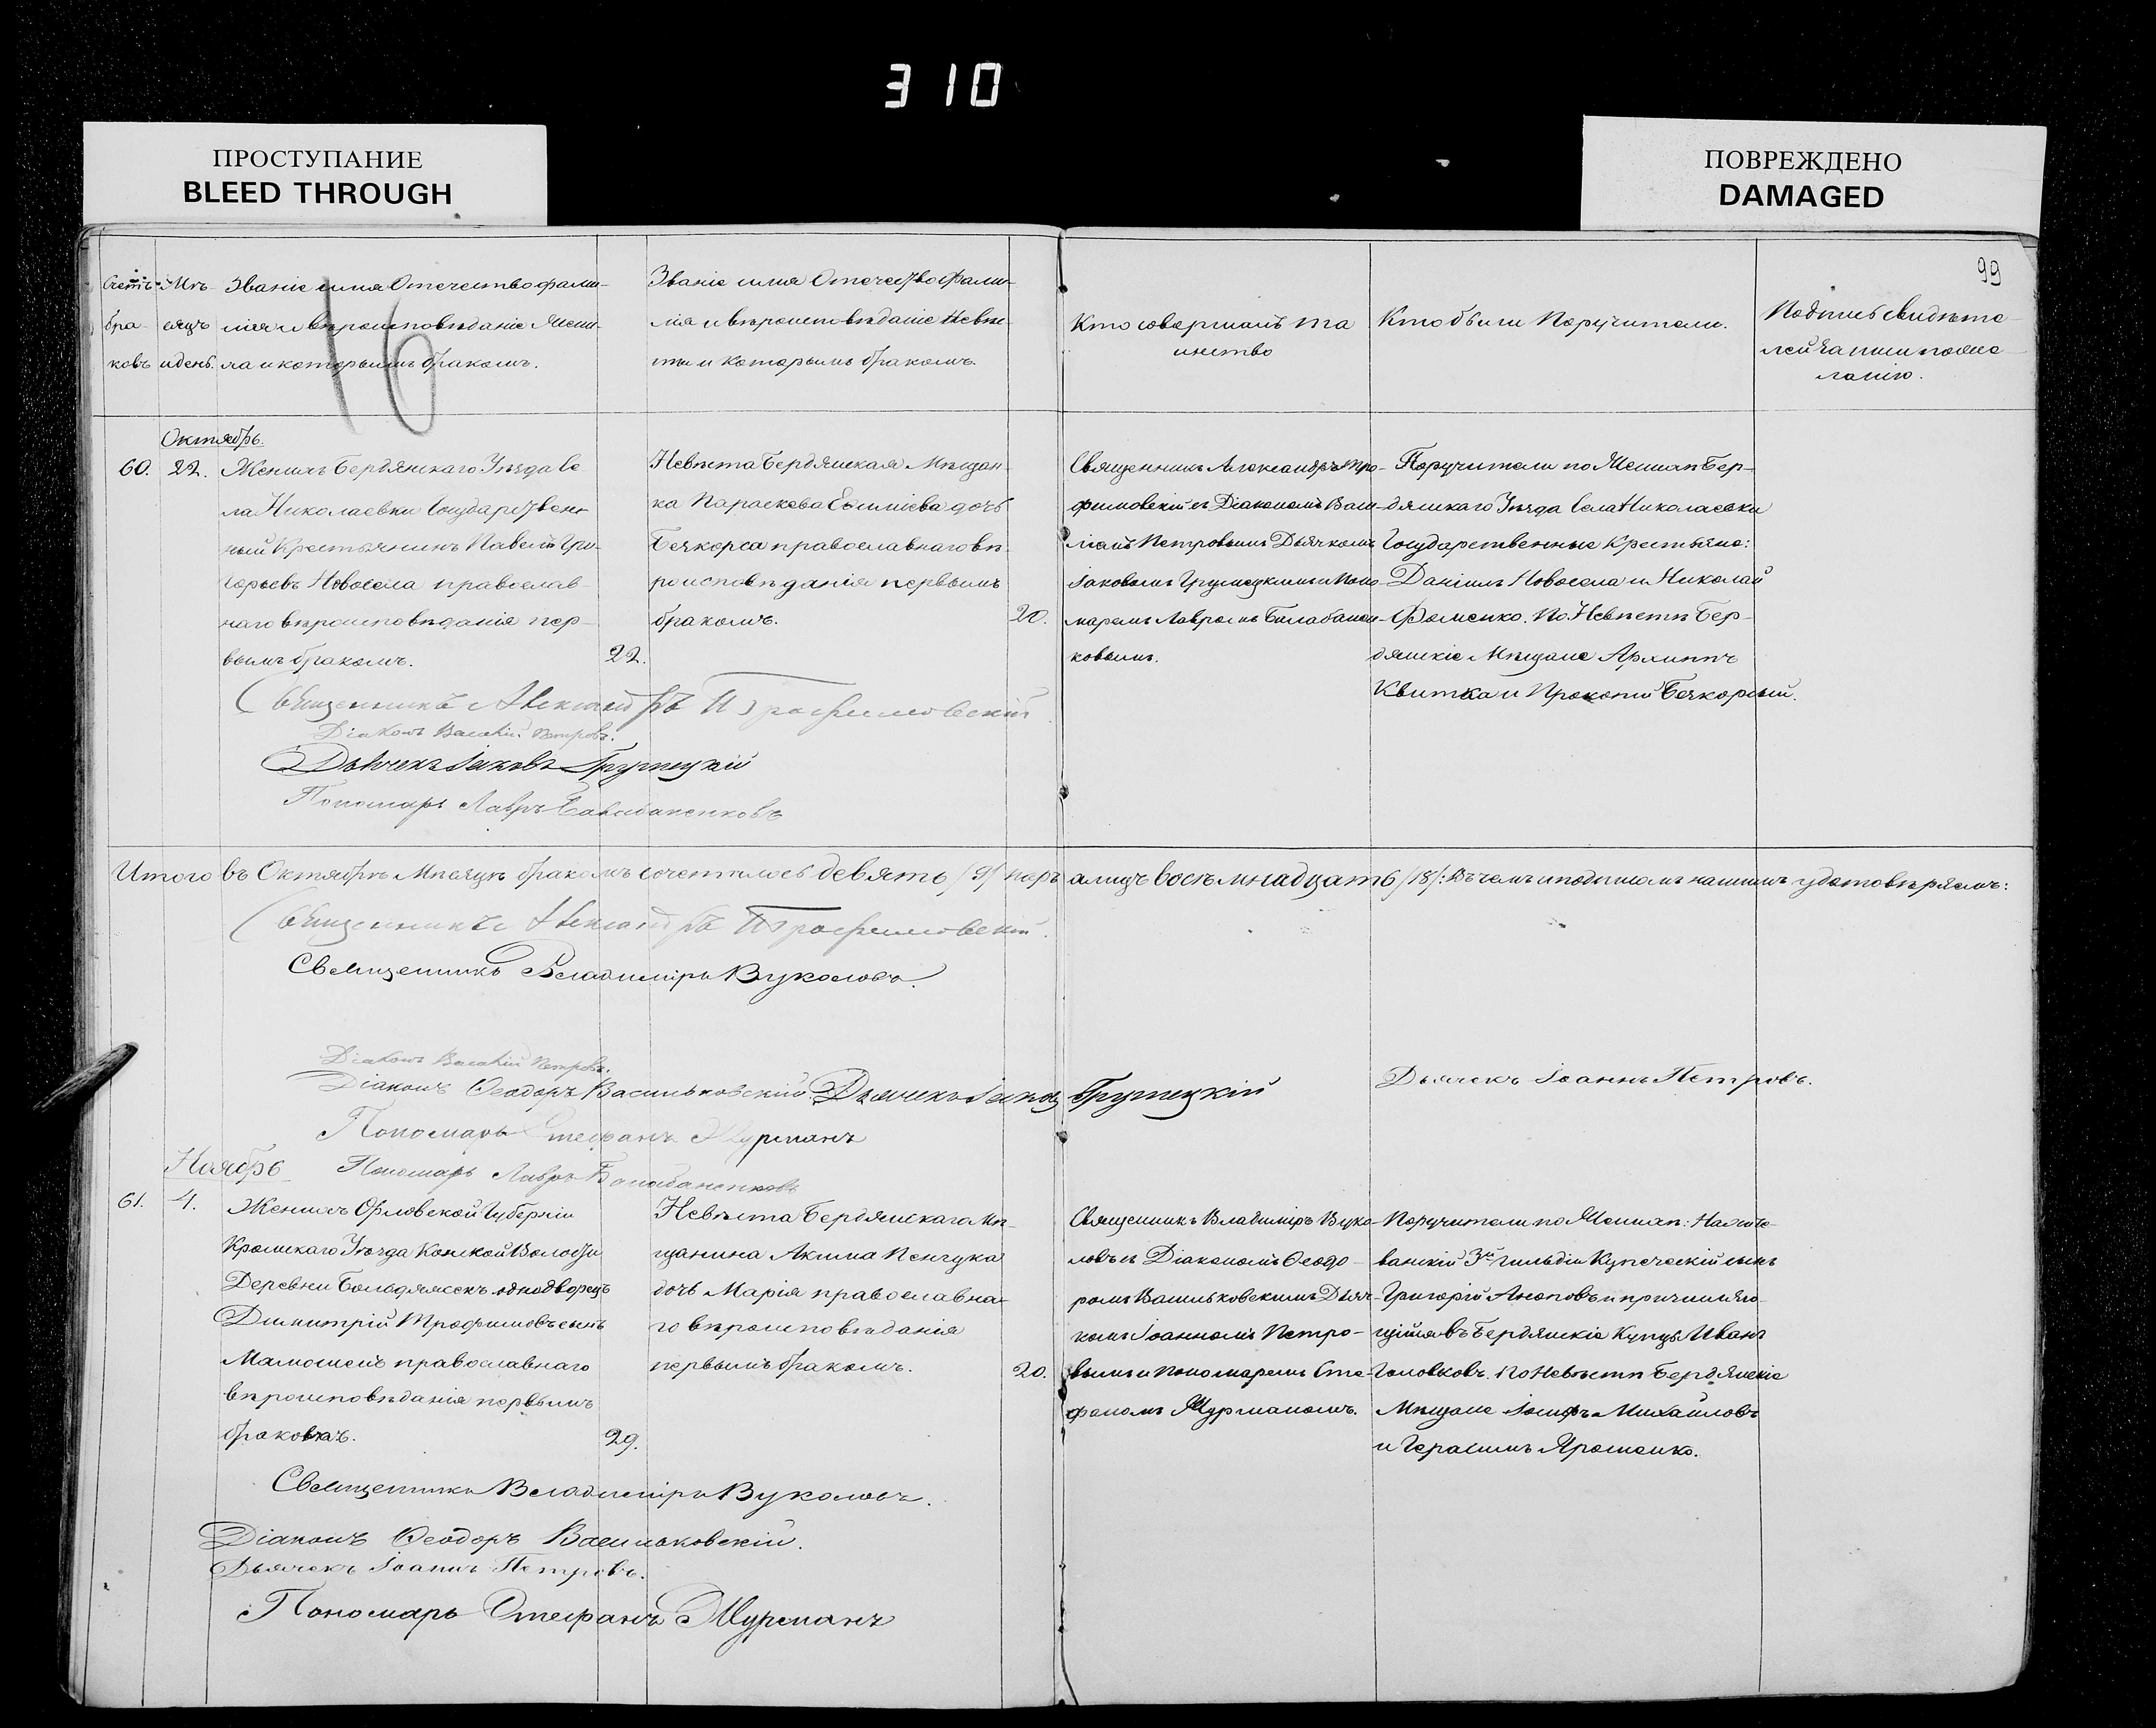 310
ПРОСТУПАНИЕ
BLEED THROUGH
ПОВРЕЖДЕНО
DAMAGED
99
16
Счетъ бра- ковъ
Мѣ- сяцъ и день.
Званіе имя Отечество фами-
лія и вѣроисповѣданіе Жени-
ха и которымъ бракомъ.
Званіе имя Отечество фами-
лія и вѣроисповѣданіе Невѣс-
ты и которымъ бракомъ.
Кто совершалъ та
инство
Кто были Поручители.
Подпись свидѣте-
лей записи по же-
ланію.
Октябрь.
60. 22.
Женихъ Бердянскаго Уѣзда Се
ла Николаевки Государствен-
ный Крестьянинъ Павелъ Гри-
горьевъ Новосела православ-
наго вѣроисповѣданія пер-
вымъ бракомъ.
22.
Невѣста Бердянская Мѣщан-
ка Параскева Евфиміева дочь
Бечкорса православнаго вѣ-
роисповѣданія первымъ
бракомъ.
20.
Священникъ Александръ Тро-
фимовскій съ Діакономъ Васи-
ліемъ Петровымъ Дьячкомъ
Іаковомъ Грушецкимъ и Поно-
маремъ Лавромъ Балабанен-
ковымъ.
Поручители по Женихѣ Бер-
дянскаго Уѣзда Села Николаевки
Государственные Крестьяне:
Даніилъ Новосела и Николай
Фоменко. По Невѣстѣ Бер-
дянскіе Мѣщане Архиппъ
Квитка и Прокопій Бечкорный.
Священникъ Александръ Трофимовскій
Діаконъ Василій Петровъ.
Дьячекъ Іаковъ Грушецкій
Пономарь Лавръ Балабаненковъ
Итого въ Октябрѣ Мѣсяцѣ бракомъ сочеталось девять /9/ паръ а лицъ восемьнадцать /18/: Въ чемъ и подписомъ нашимъ удостовѣряемъ:
Священникъ Александръ Трофимовскій.
Священникъ Владиміръ Вуколовъ.
Діаконъ Василій Петровъ.
Діаконъ Ѳеодоръ Васильковскій Дьячекъ Іаковъ Грушецкій
Дьячекъ Іоаннъ Петровъ.
Пономарь Стефанъ Шурманъ
Пономарь Лавръ Балабаненковъ
Ноябрь
61. 4.
Женихъ Орловской Губерніи
Кромскаго Уѣзда Волости
Деревни однодворецъ
Димитрій Трофимовъ сынъ
православнаго
вѣроисповѣданія первымъ
бракомъ.
29.
Невѣста Бердянскаго Мѣ-
щанина Акима Пенчука
дочь Марія православна-
го вѣроисповѣданія
первымъ бракомъ.
20.
Священникъ Владиміръ Вуко-
ловъ съ Діакономъ Ѳеодо-
ромъ Васильковскимъ Дьяч-
комъ Іоанномъ Петро-
вымъ и Пономаремъ Сте-
фаномъ Шурманомъ.
Поручители по Женихѣ:
3й гильдіи Купеческій сынъ
Григорій и
въ Бердянскіе Купцы Иванъ
Головковъ. По Невѣстѣ Бердянскіе
Мѣщане Іосифъ Михайловъ
и Герасимъ Ярошенко.
Священникъ Владиміръ Вуколовъ.
Діаконъ Ѳеодоръ Васильковскій.
Дьячекъ Іоаннъ Петровъ.
Пономарь Стефанъ Шурманъ